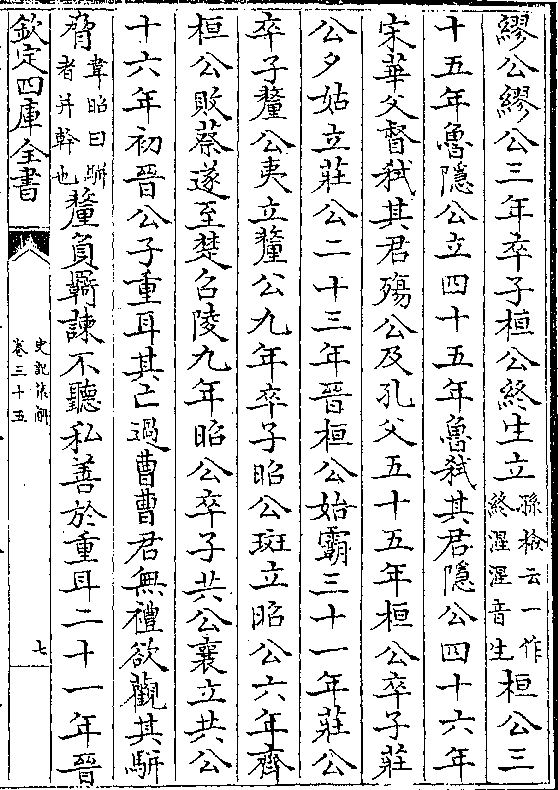 繆公繆公三年卒子桓公終生立孫檢云一作終湦湦音生桓公三
十五年魯隱公立四十五年魯弑其君隱公四十六年
宋華父督弑其君殤公及孔父五十五年桓公卒子莊
公夕姑立莊公二十三年晉桓公始霸三十一年莊公
卒子釐公夷立釐公九年卒子昭公斑立昭公六年齊
桓公敗蔡遂至楚召陵九年昭公卒子共公襄立共公
十六年初晉公子重耳其亡過曹曹君無禮欲觀其駢
脅韋昭曰駢者并幹也釐負羈諫不聽私善於重耳二十一年晉
欽定四庫全書
史記集解
卷三十五
七